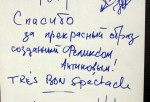 Спасибо
за прекрасный образ
созданный Феликсом
Антиповым!
TRÈS BON Spectacle